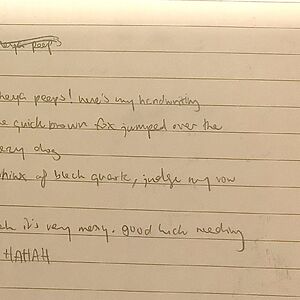 heya peeps
heya peeps! here's my handwriting
quick brown fox jumped over the
dog
of black quartz, judge my vow
it's very messy. good luck reading
HAHAH